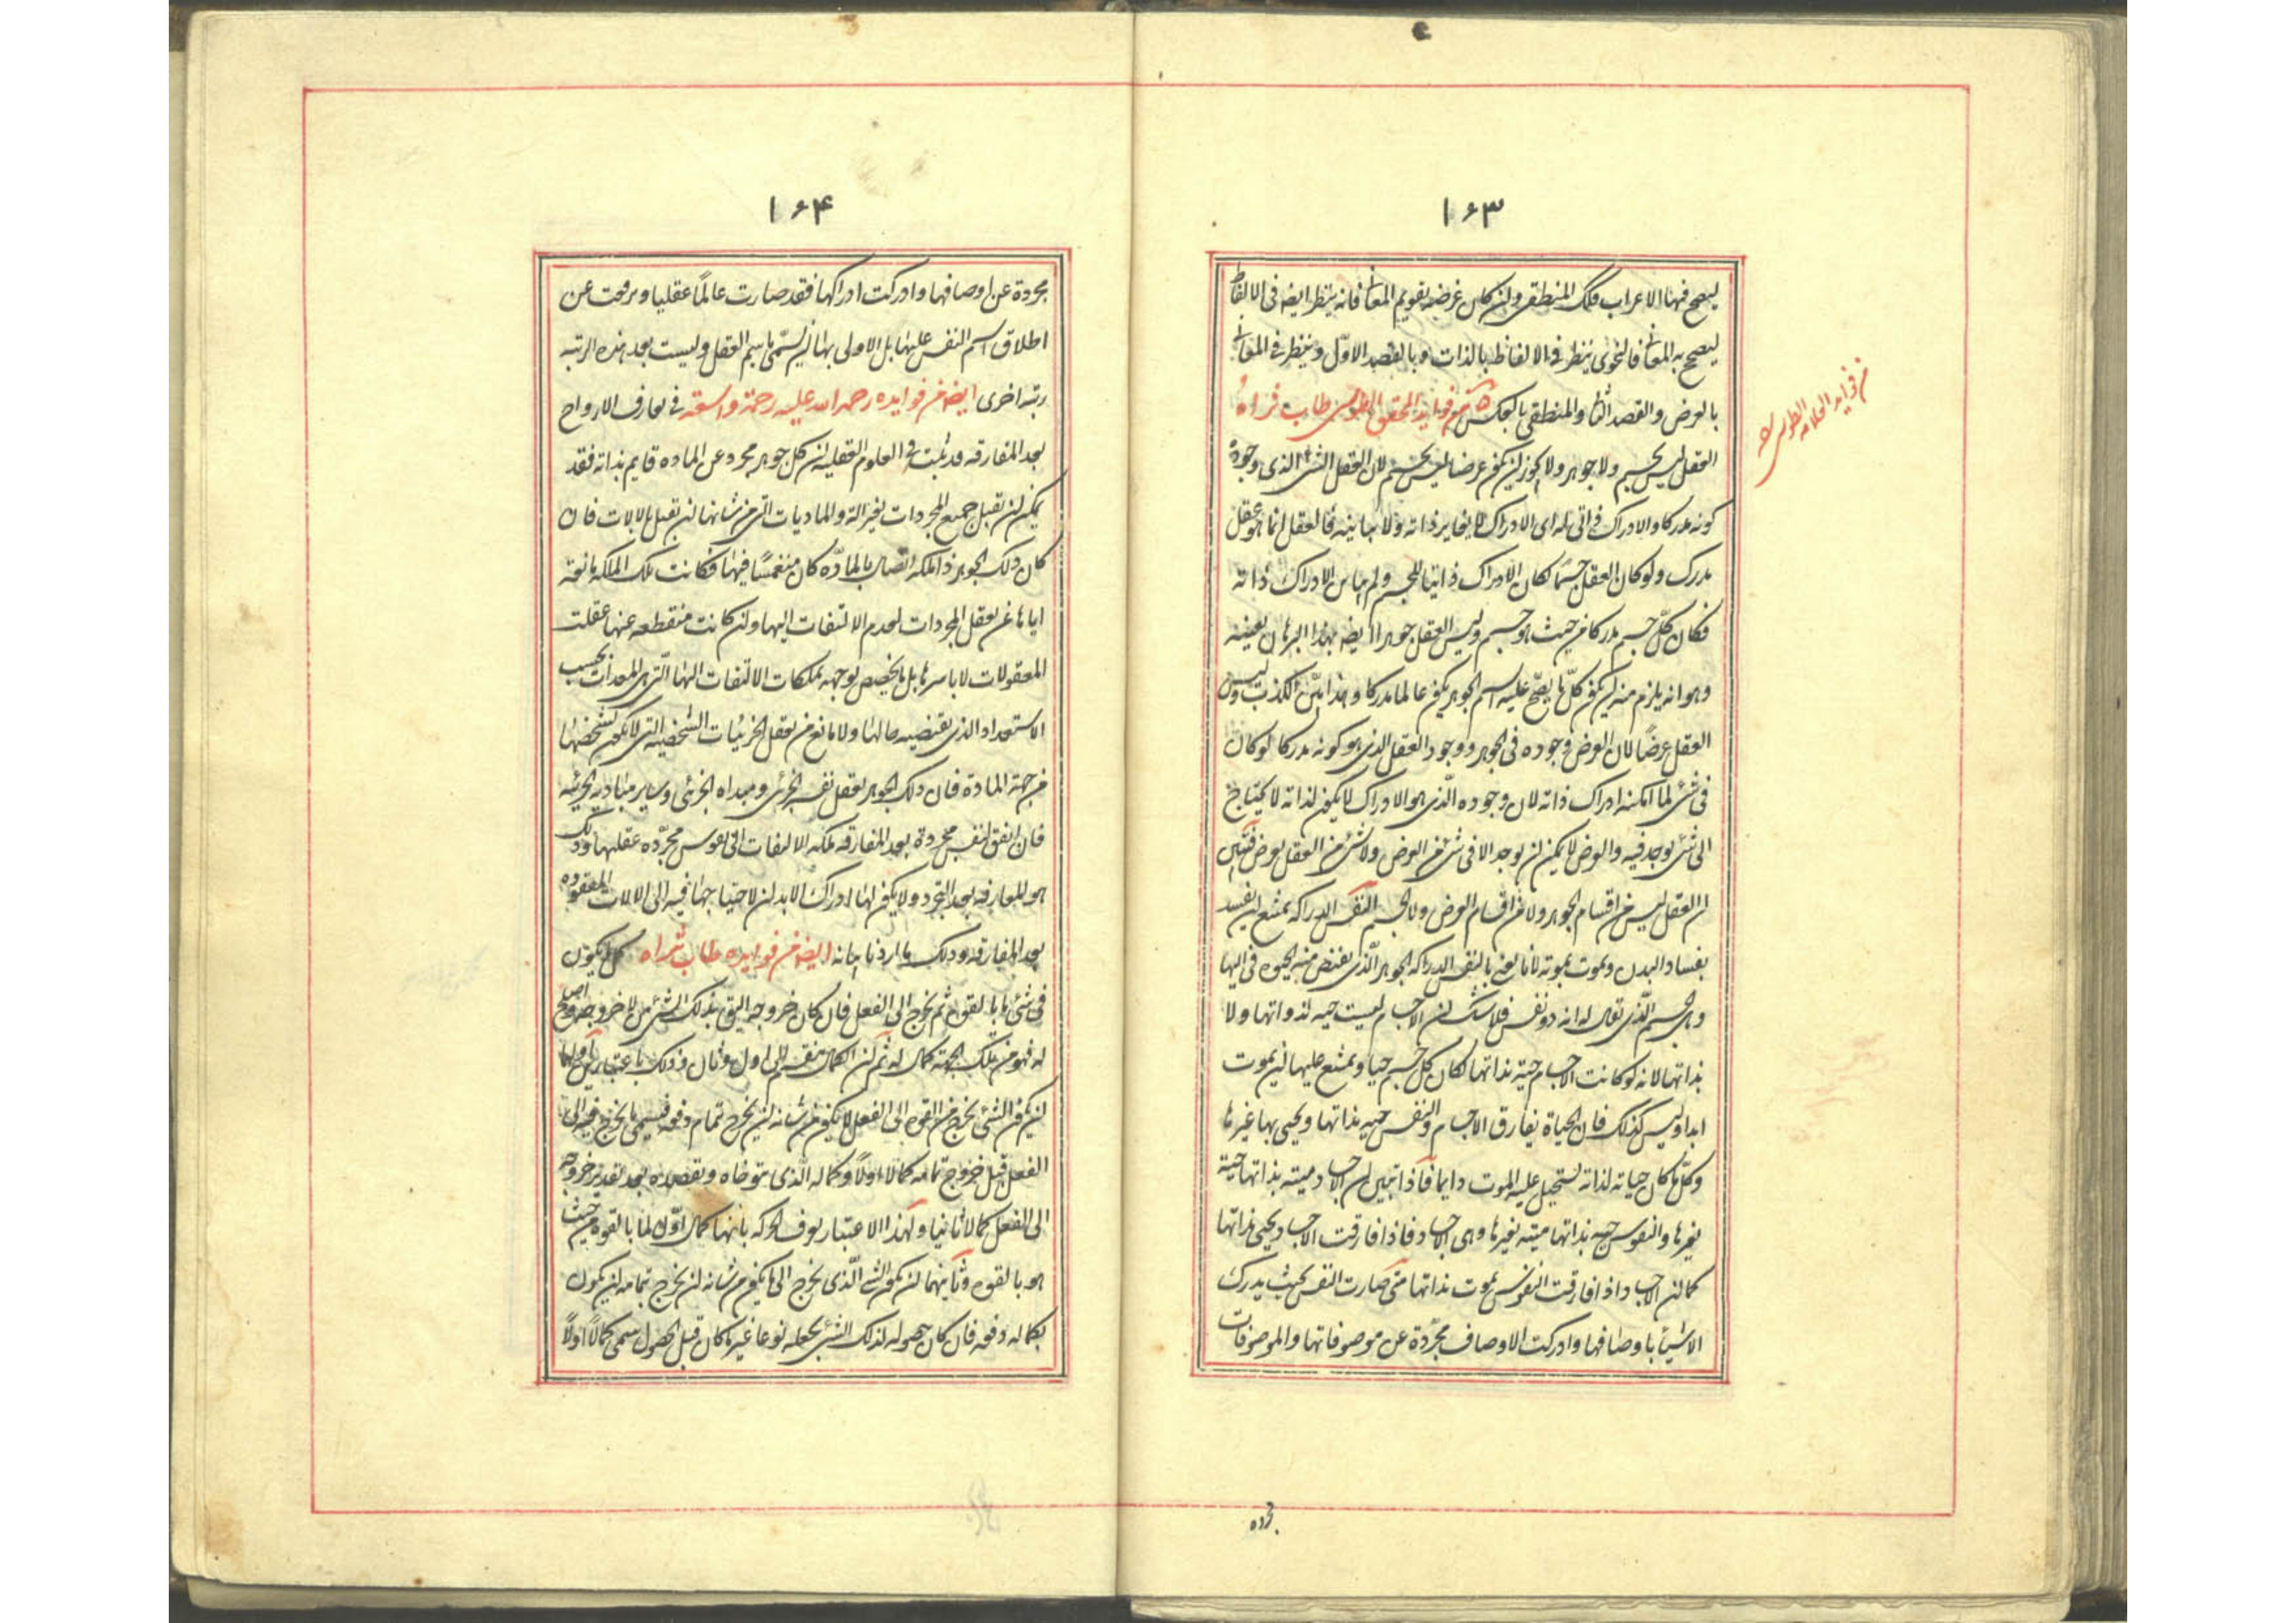 ۱۶۳
ليصح فهنا الاعراب فكك المنطقى ولن كان غرضه تقويم المعانى فانه ينظر ايضه فى الالفاظ
ليصح به المعانى فالنحوى ينظر فى الالفاظ بالذات وبالقصد الاوّل وينظر فى المعانى
بالعرض والقصد الثانى والمنطقى بالعكس من فوايد المحقق الطوسى طاب ثراه
من فوايد العلامه الطوسى ره
العقل ليس بجسم ولا جوهر ولا يجوز لن يكون عرضا ليس بجسم لان العقل الشىء الذى وجوده
كونه مدركا والادراك ذاتى له اى الادراك لا يغاير ذاته ولا يباينه فالعقل انما هو عقل
مدرك ولو كان العقل جسمًا لكان الادراك ذاتيا للجسم ولم يباين الادراك ذاته
فكان كلّ جسم مدركا من حيث هو جسم وليس العقل جوهرا ايضه بهذا البرهان بعينه
وهو انه يلزم منه لن يكون كلّ ما يصحّ عليه اسم الجوهر يكون عالما مدركا وهذا بيّن الكذب وليس
العقل عرضًا لان العرض وجوده فى الجوهر ووجود العقل الذى هو كونه مدركا لو كان
فى شئ لما امكنه ادراك ذاته لان وجوده الّذى هو الادراك لا يكون لذاته لا يحتاج
الى شئ يوجد فيه والعرض لا يمكن لن يوجد الا فى شئ من العرض ولا شئ من العقل بعرض فتبيّن
ان العقل ليس من اقسام الجوهر ولا من اقسام العرض ولا الجسم النفس الدراكه يمتنع لن يفسد
بفساد البدن وتموت بموته لانا نعنى بالنفس الدراكه الجوهر الّذى يفيض منه الحيوة فى اليها
وهى الجسم الّذى تقال له انه ذو نفس فلا شك لن الاجسام ليست حيه لذواتها ولا
بذاتها لانه لو كانت الاجسام حيّة بذاتها لكان كل جسم حيا ويمتنع عليها لن يموت
ابدا وليس كذلك فان الحياة يفارق الاجسام والنفس حيه بذاتها ويحيى بها غيرها
وكلّ ما كان حياته لذاته يستحيل عليه الموت دايما فاذا تبيّن لن الاجساد ميته بذاتها حيّة
بغيرها والنفوس حيه بذاتها ميته بغيرها وهى الاجساد فاذا فارقت الاجساد يحيى بذاتها
كما لن الاجساد اذا فارقت النفوس يموت بذاتها متى صارت النفس بحيث يدرك
الاشياء باوصافها وادركت الاوصاف مجرّدة عن موصوفاتها والموصوفات
مجرده
۱۶۴
مجردة عن اوصافها وادركت ادراكها فقد صارت عالمًا عقليا ويرفعت عن
اطلاق اسم النفس عليها بل الاولى بها لن يسمّى باسم العقل وليست بعد هذه الرتبه
رتبه اخرى ايضه من فوايده رحمه الله عليه رحمة واسعة فى تعارف الارواح
بعد المفارقه قد ثبت فى العلوم العقليه لن كل جوهر مجرد عن الماده قايم بذاته فقد
يمكن لن تقبل جميع المجردات بغير الة والماديات الّتى من شانها لن تقبل بالالات فان
كان ذلك الجوهر ذا ملكه اتصال بالمادّه كان منغمسًا فيها فكانت تلك الملكه مانعة
اياها عن تعقل المجردات لعدم الالتفات اليها ولن كانت منقطعه عنها عقلت
المعقولات لا باسرها بل ما يخصص توجهه بملكات الالتفات اليها الّتى هى المعدات بحسب
الاستعداد الذى يقتضيه حالها ولا مانع من تعقل الجزئيات الشخصيه التى لا يكون تشخصها
من جهة المادة فان ذلك الجوهر يعقل نفسه الجزئى ومبداه الجزئى وساير مباديه الجزئيه
فان اتفق لنفس مجردة بعد المفارقه ملكه الالتفات الى نفوس مجرّده عقليها وذلك
هو المعارفه بعد التجرد ولا يكون لها ادراك الابدان لاحتياجها فيه الى الالات المفقوده
بعد المفارقه وذلك ما اردنا بيانه ايضه من فوايده طاب ثراه كل ما يكون
فى شئ ما بالقوه ثم يخرج الى الفعل فان كان خروجه اليق بذلك الشئ من لا خروجه اصلح
له فهو من تلك الجهة كمال له ثم لن الكمال ينقسم الى اول وثان وذلك باعتبارين اولهما
لن يكون الشئ يخرج من القوه الى الفعل لا يكون من شانه لن يخرج تمام دفعه فيسمى ما يخرج فيه الى
الفعل قبل خروج تمامه كمالا اولا وكماله الّذى يتوخاه ويقصده بعد تقدير خروجه
الى الفعل كمالا ثانيا وبهذا الاعتبار يعرف الحركه بانها كمال اوّل لما بالقوه من حيث
هو بالقوه وثانيهما لن يكون الشئ الّذى يخرج الى ما يكون من شانه لن يخرج تمامه لن يكون
بكماله دفعه فان كان حصوله لذلك الشئ يجعله نوعا غير ما كان قبل الحصول سمى كمالا اولاً